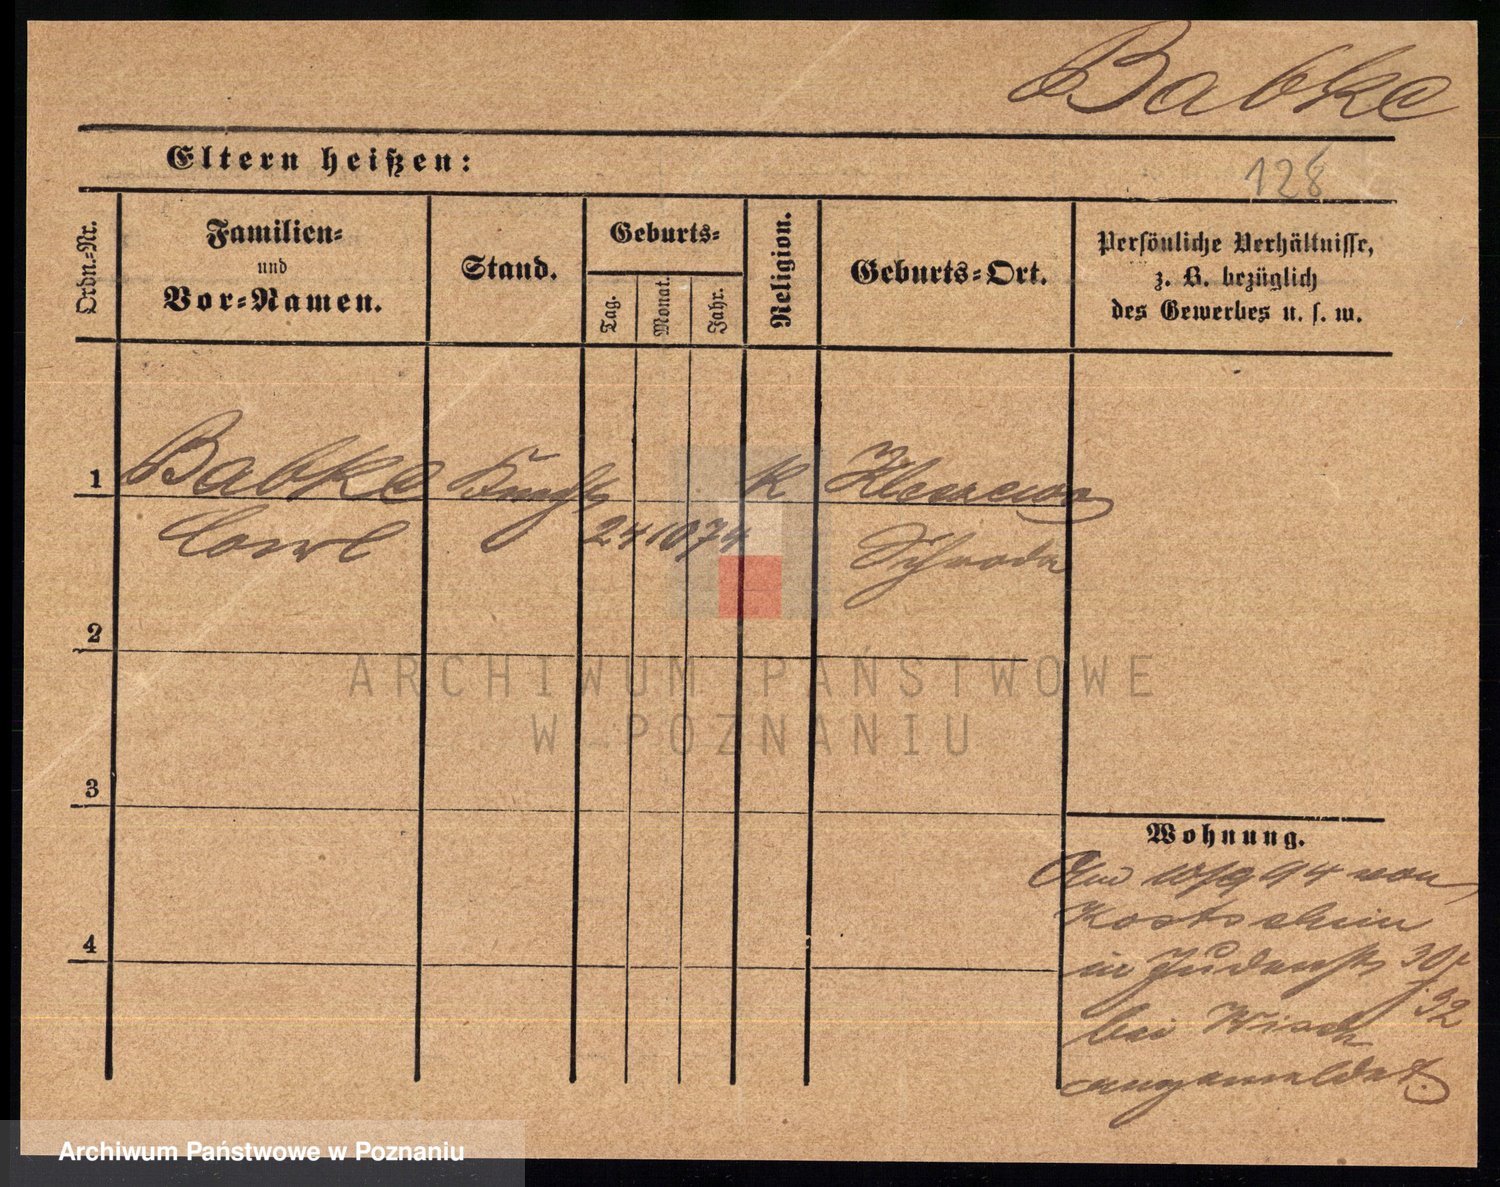 Babke
Eltern heißen:
128
Ordn.-Nr.
Familien-
und
Vor-Namen.
Stand.
Geburts-
Tag.
Monat.
Jahr.
Religion.
Geburts-Ort.
Persönliche Verhältnisse,
z. B. bezüglich
des Gewerbes u. s. w.
1
Babke
K
24 10 74
Schroda
2
3
4
ARCHIWUM PAŃSTWOWE
W POZNANIU
Wohnung.
94 von
Kostschin
in Judenstr 30/
32
bei
angemeldet.
Archiwum Państwowe w Poznaniu